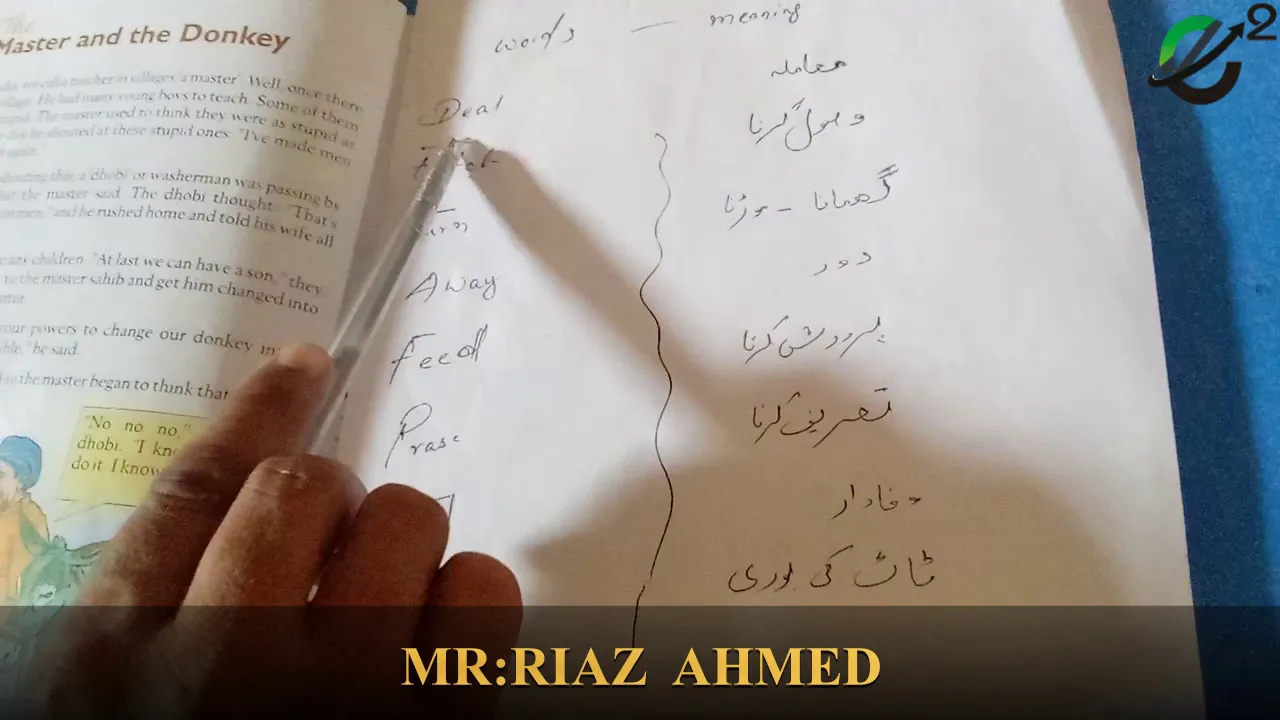 The
Master and the Donkey
we call a teacher in villages 'a master'. Well, once there
village. He had many young boys to teach. Some of them
stupid. The master used to think they were as stupid as
day he shouted at these stupid ones: "I've made men
again."
shouting this, a 'dhobi' or washerman was passing by
the master said. The dhobi thought: "That's
men," and he rushed home and told his wife all
any children. "At last we can have a son," they
to the master sahib and get him changed into
your powers to change our donkey in
he said.
so the master began to think that
"No no no,"
dhobi. "I kn
do it. I know
words — meaning
Deal معاملہ
وصول کرنا
گھمانا - موڑنا
Away دور
Feed پرورش کرنا
Prase تعریف کرنا
وفادار
ٹاٹ کی بوری
MR:RIAZ AHMED
2